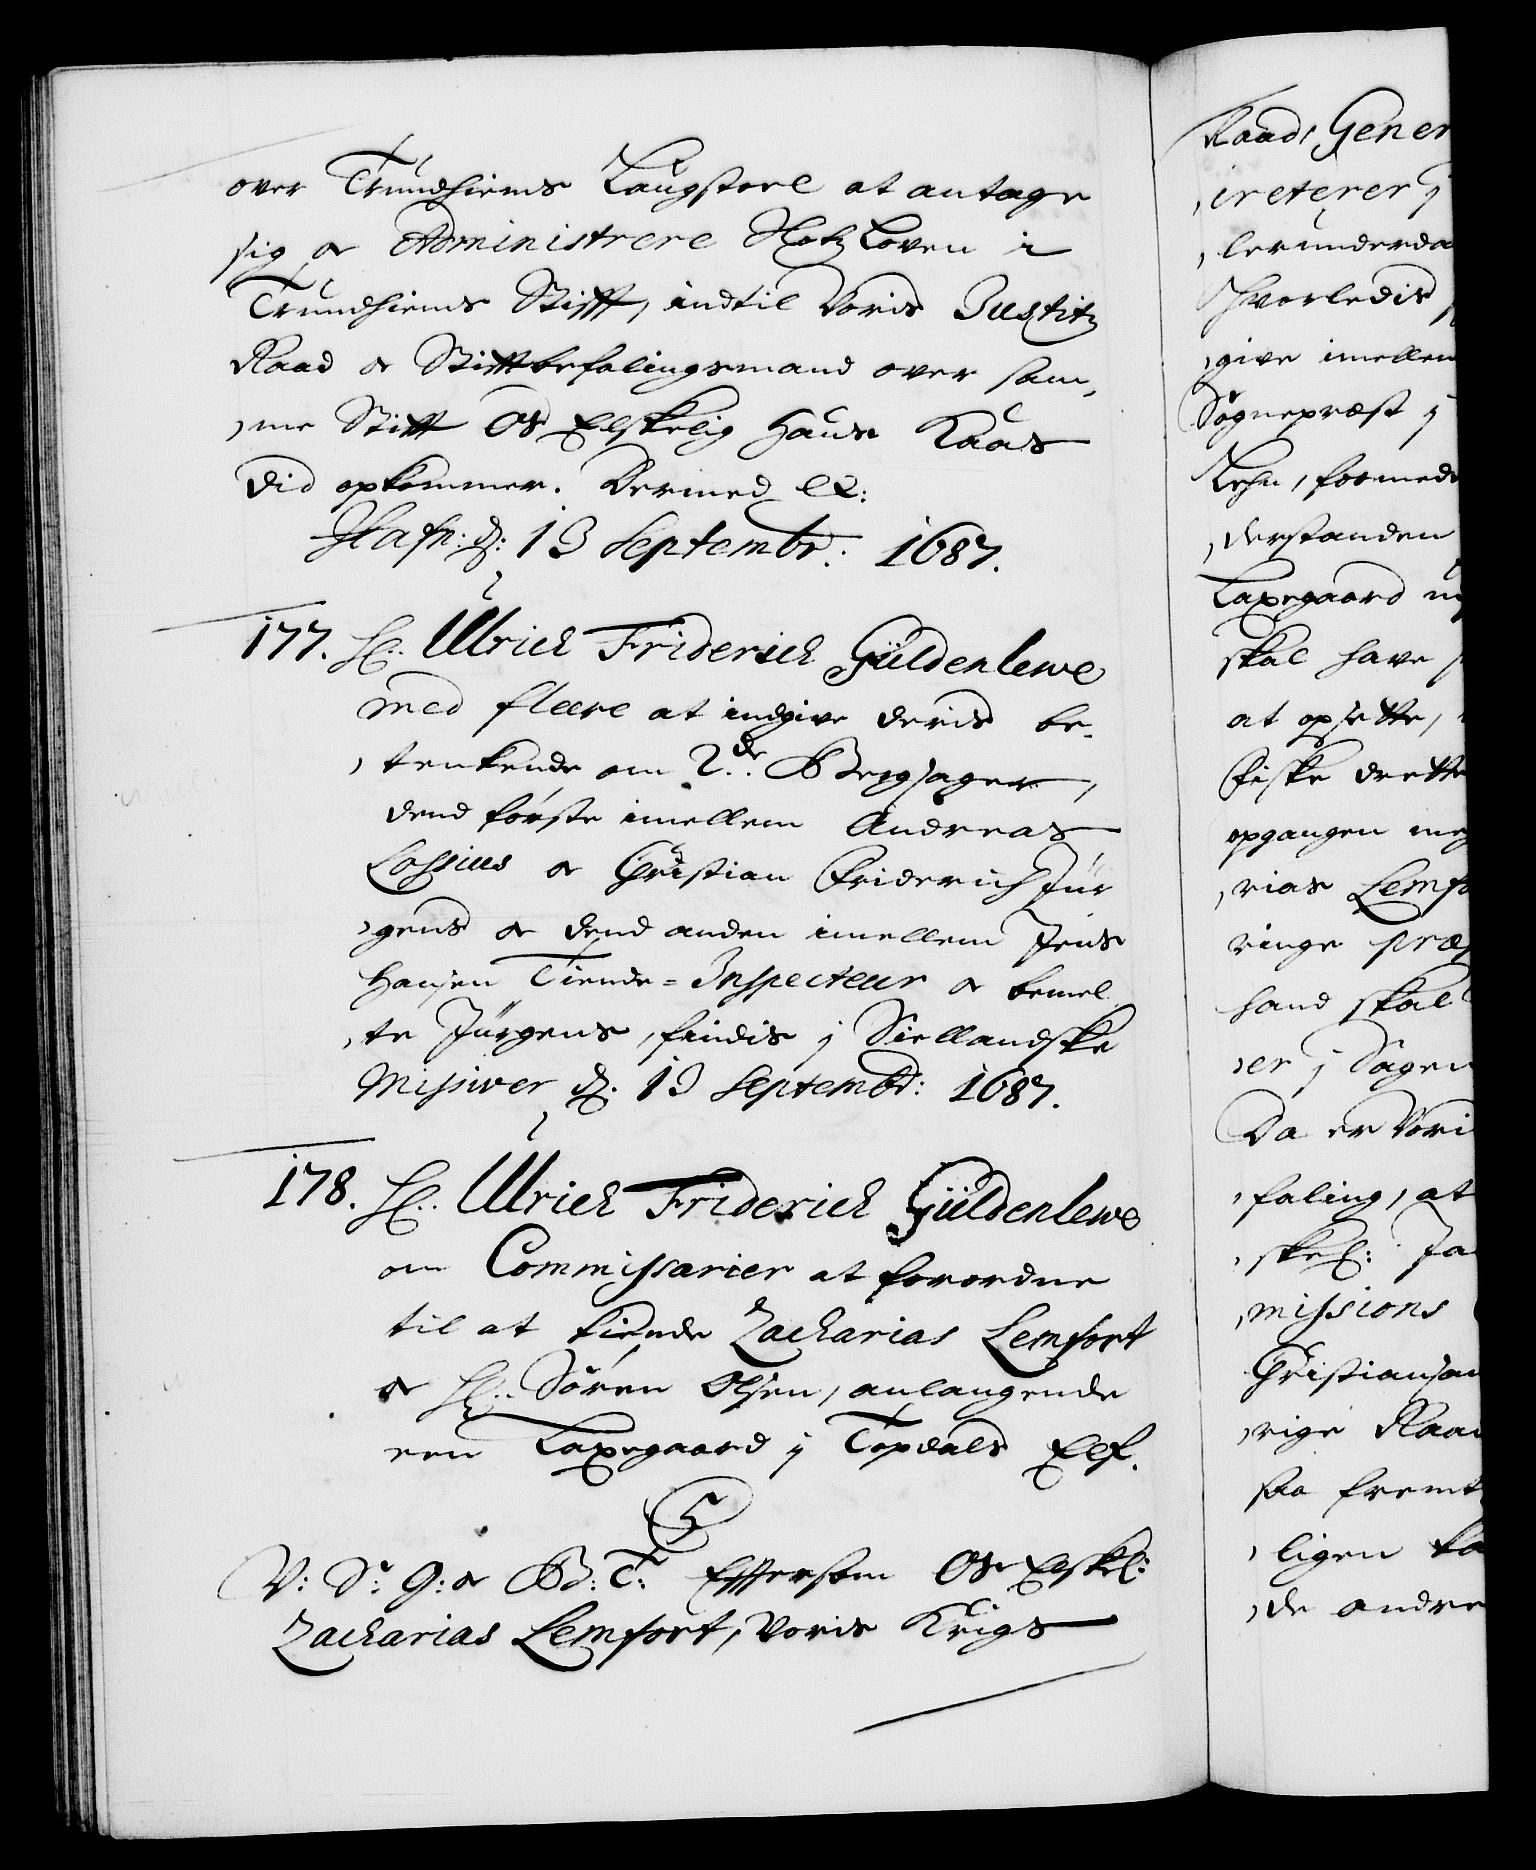 over Trundhiems Laugstoel at antage
sig og Administrere Slotz Loven i
Trundhiems Stifft, indtil Voris Justitz
Raad og Stifftbefalingsmand over sam¬
¬me Stifft Os Elskelig Hans Kaas
did opkommer. Dermed etc:
Hafn: d: 13 Septembr: 1687.
177. Hr: Ulrich Friderich Güldenlewe
med fleere at indgive deris be¬
¬tenkende om 2de: Bergsager,
dend første imellem Andreas
Lossius og Christian Friderich Jür
¬gens og dend anden imellem Jens
Hansen Tiende-Inspecteur og bemel
¬te Jürgens, findis j Siellandske
Missiver d. 13 Septembr: 1687.
178. Hr: Ulrich Friderich Güldenlewe
om Commissarier at forordne
til at kiende Zacharias Lemfort
og Hr: Søren Olsen, anlangende
een Laxegaard j Topdals Elf.
V: S: G: og B: T: Eftersom Os Elskel:
Zacharias Lemfort, Voris Krigs
Raad, Gener
¬ireterer j
¬lerunderda
hvorledis
¬give imellem
Sognepræst j
Lehn, formed
¬derstanden
Laxegaard
skal have
at opsette,
Fiske drette
opgangen
¬rias Lemfo
ringe præ
hand skal
¬er j Sagen
Da er Vori
¬faling, at
¬skel: Ja
¬missions
Christiansan
¬rige Raad
saa fremt
¬ligen ka
¬de andre